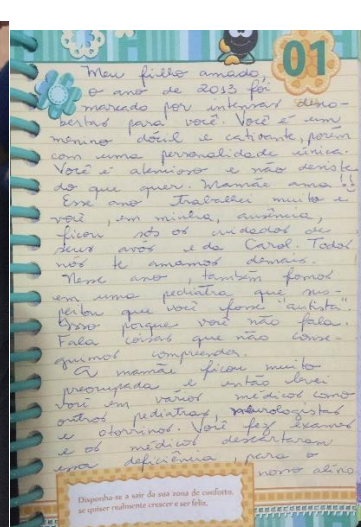 01
Meu filho amado,
o ano de 2013 foi
marcado por intensas desco-
bertas para você. Você é um
menino dócil e cativante, porém
com uma personalidade única.
Você é atencioso e não desiste
do que quer. Mamãe ama!!
Esse ano trabalhei muito e
você, em minha, ausência,
ficou sób os cuidados de
seus avós e da Carol. Todos
nós te amamos demais.
Nesse ano, também fomos
em uma pediatra que sus-
peitou que você fosse "autista".
Isso porque você não fala.
Fala coisas que não conse-
guimos compreender.
A mamãe ficou muito
preocupada e então levei
você em vários médicos como
outros pediatras, neurologistas
e otorrinos. Você fez exames
e os médicos descartaram
essa deficiência, para o
nosso alívio
Disponha-se a sair da sua zona de conforto,
se quiser realmente crescer e ser feliz.